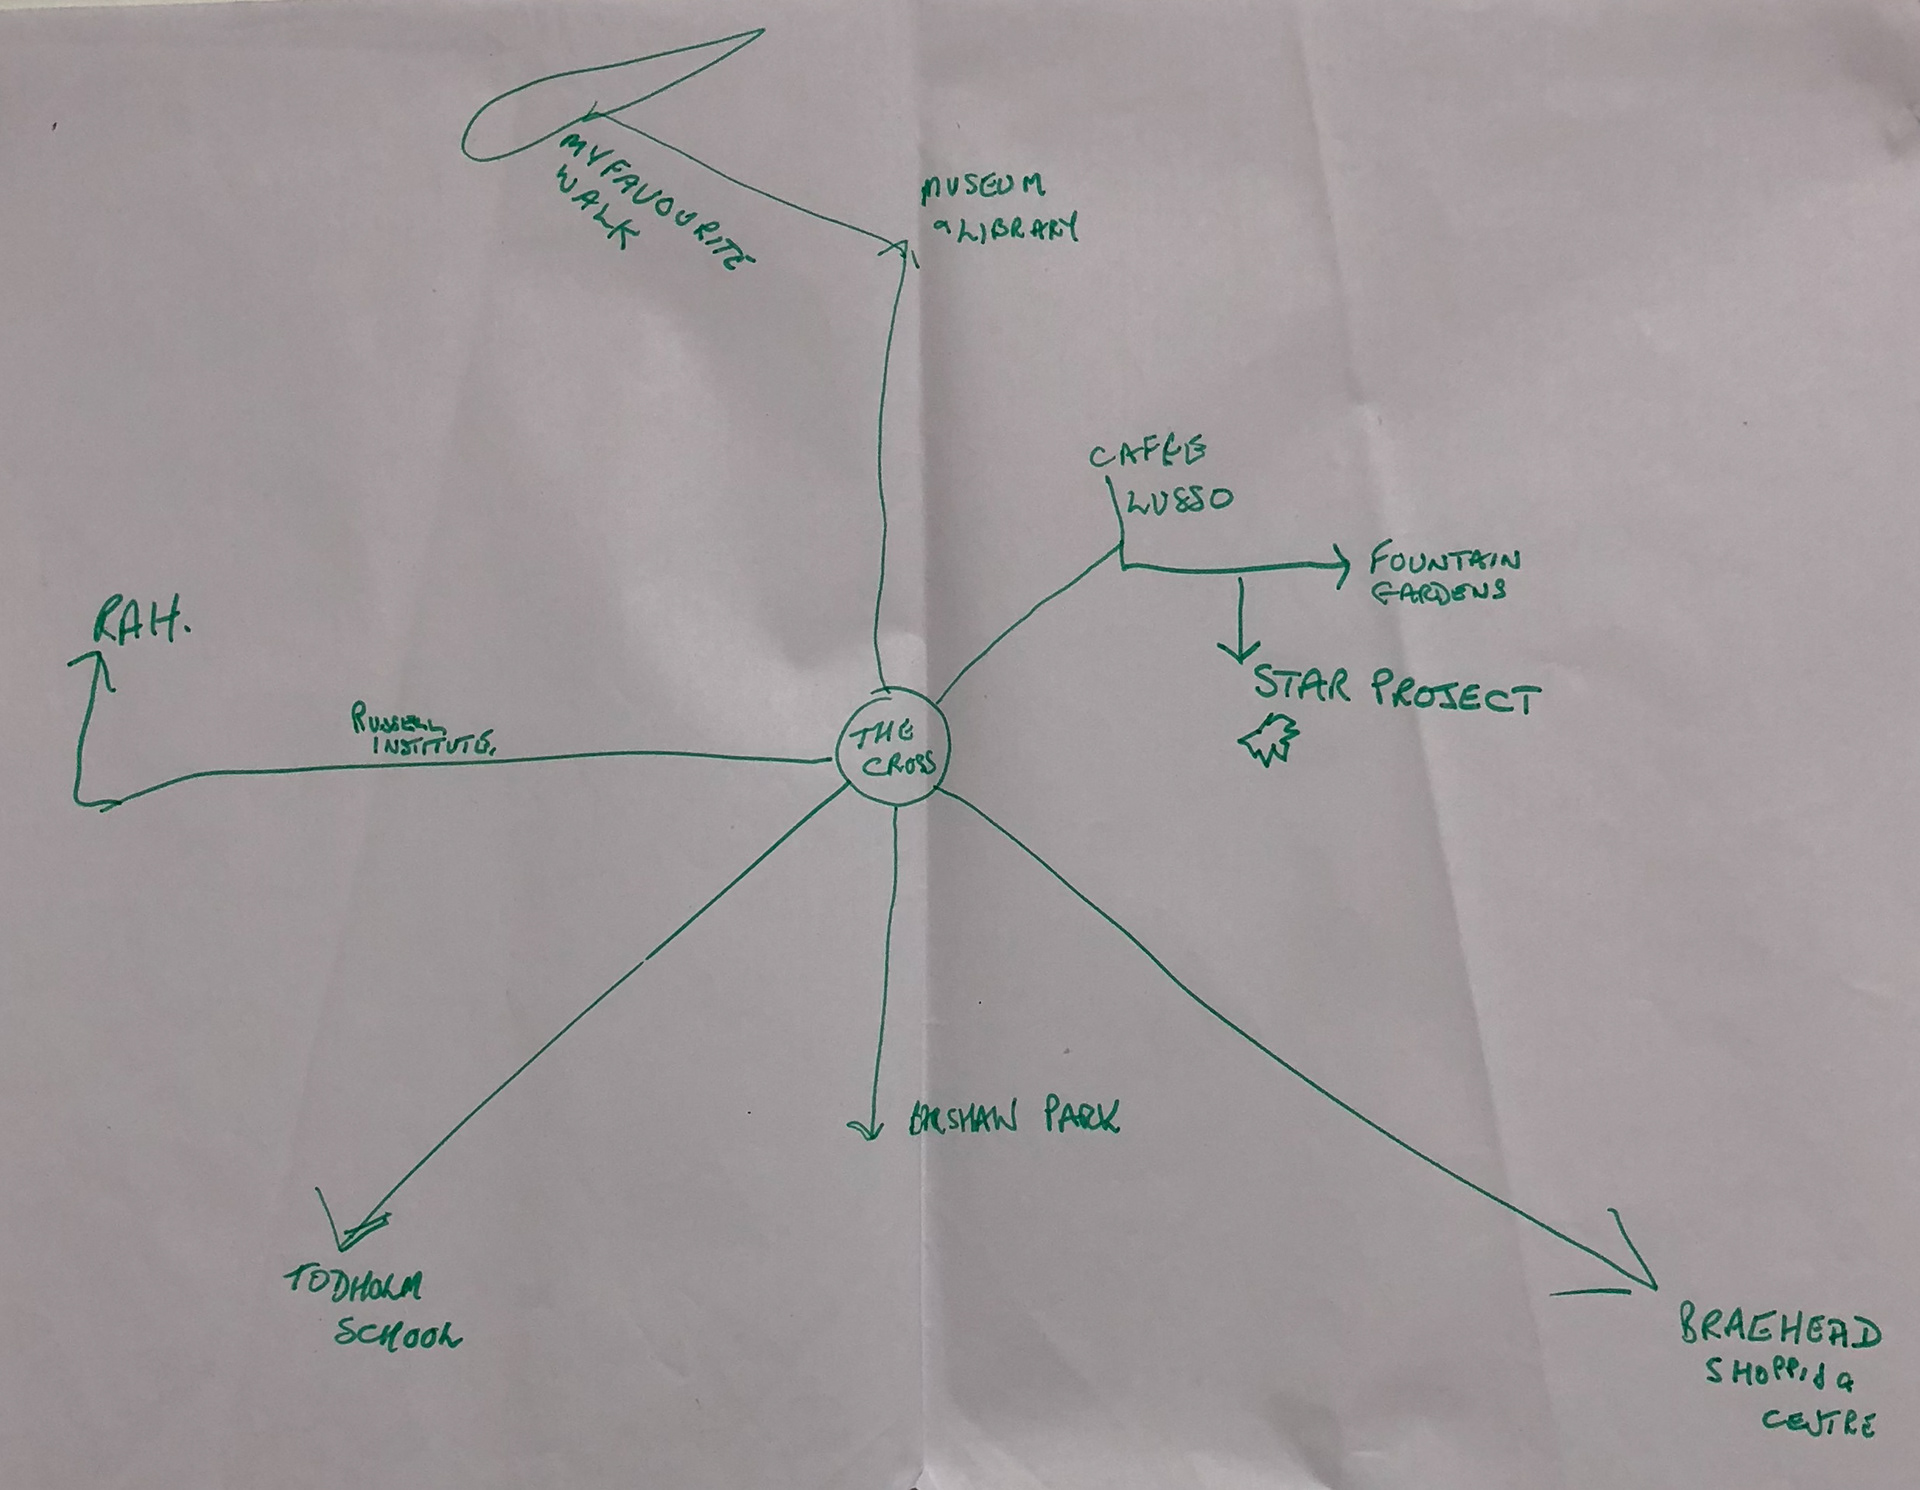 MY FAVOURITE
WALK
MUSEUM
& LIBRARY
CAFÉE
LUSSO
FOUNTAIN
GARDENS
STAR PROJECT
RAH.
RUSSELL
INSTITUTE.
THE
CROSS
PARK
TODHOLM
SCHOOL
BRAEHEAD
SHOPPING
CENTRE